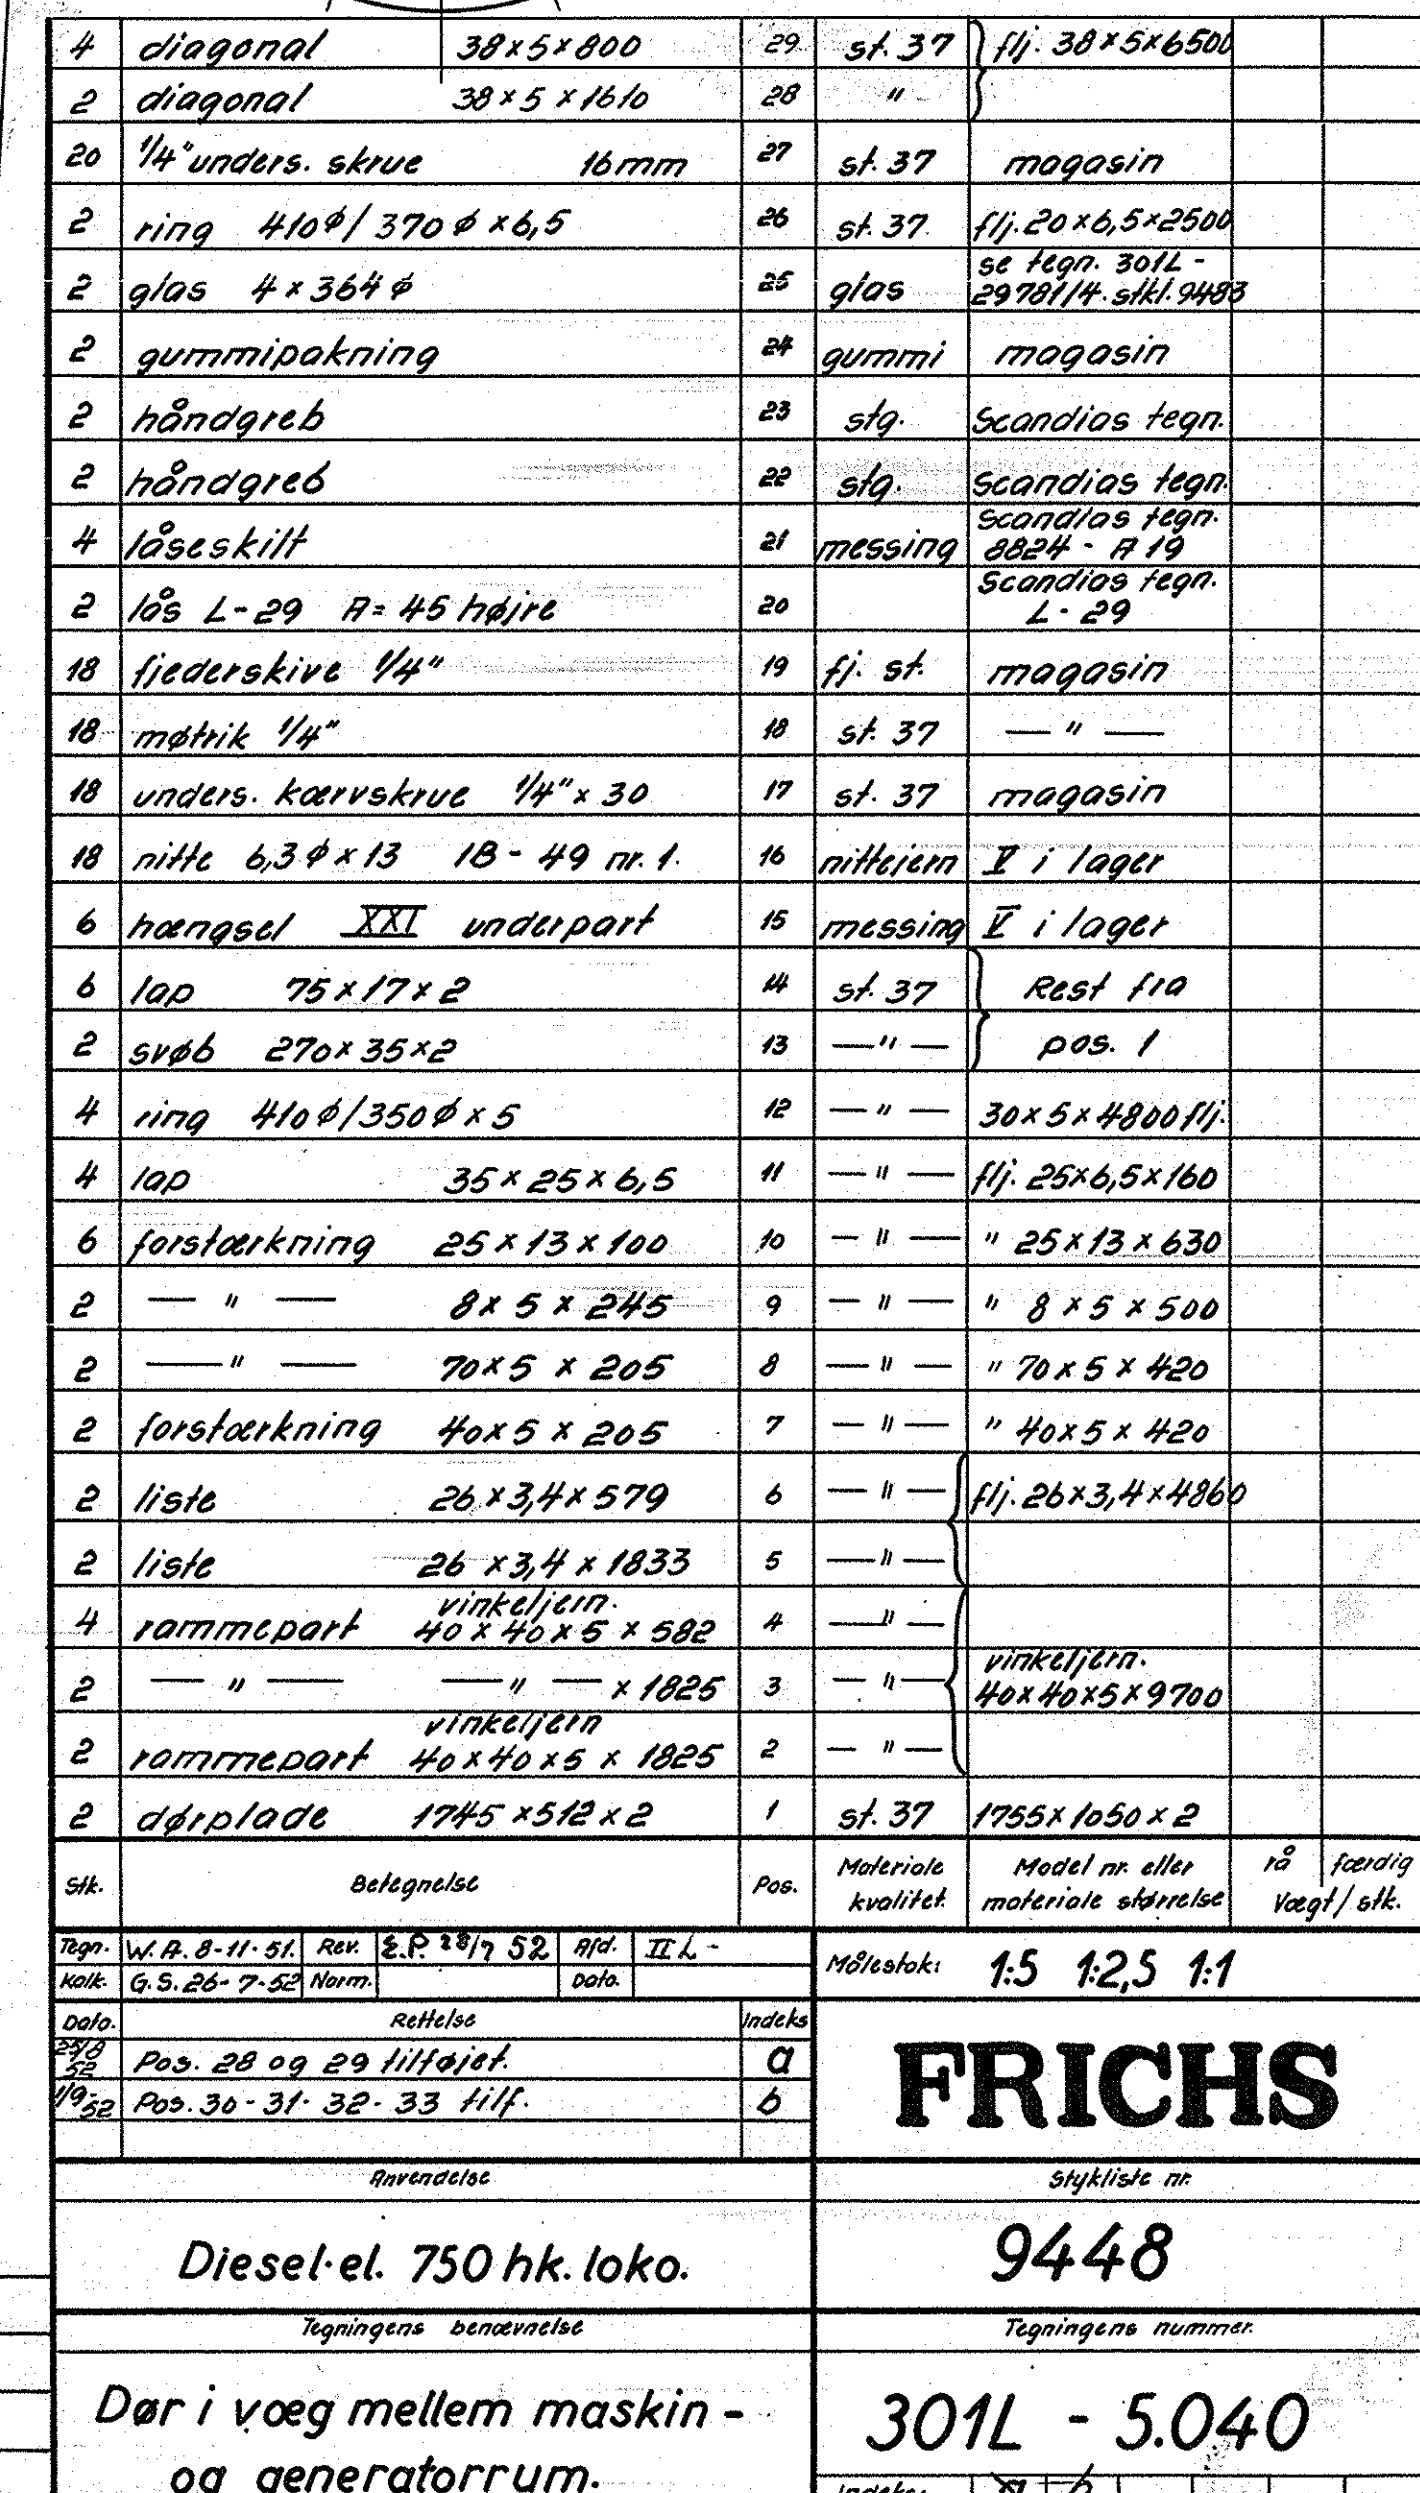 4 diagonal 38×5×800 29 st. 37 flj. 38×5×6500
2 diagonal 38×5×1610 28 "
20 1/4" unders. skrue 16mm 27 st. 37 magasin
2 ring 410ø/370ø×6,5 26 st. 37. flj. 20×6,5×2500
2 glas 4×364ø 25 glas se tegn. 301L-
29781/4. stkl. 9483
2 gummipakning 24 gummi magasin
2 håndgreb 23 stg. Scandias tegn.
2 håndgreb 22 stg. Scandias tegn.
4 låseskilt 21 messing Scandias tegn.
8824 - A 19
2 lås L-29 A=45 højre 20 Scandias tegn.
L-29
18 fjederskive 1/4" 19 fj. st. magasin
18 møtrik 1/4" 18 st. 37 — " —
18 unders. kærvskrue 1/4"×30 17 st. 37 magasin
18 nitte 6,3ø×13 1B-49 nr. 1. 16 nittejern V i lager
6 hængsel XXI underpart 15 messing V i lager
6 lap 75×17×2 14 st. 37 Rest fra
2 svøb 270×35×2 13 — " — pos. 1
4 ring 410ø/350ø×5 12 — " — 30×5×4800 flj.
4 lap 35×25×6,5 11 — " — flj. 25×6,5×160
6 forstærkning 25×13×100 10 — " — " 25×13×630
2 — " — 8×5×245 9 — " — " 8×5×500
2 — " — 70×5×205 8 — " — " 70×5×420
2 forstærkning 40×5×205 7 — " — " 40×5×420
2 liste 26×3,4×579 6 — " — flj. 26×3,4×4860
2 liste 26×3,4×1833 5 — " —
4 rammepart vinkeljern. 40×40×5×582 4 — " —
2 — " — — " — ×1825 3 — " — vinkeljern. 40×40×5×9700
2 rammepart vinkeljern 40×40×5×1825 2 — " —
2 dørplade 1745×512×2 1 st. 37 1755×1050×2
Stk. Betegnelse Pos. Materiale kvalitet. Model nr. eller materiale størrelse rå færdig Vægt/stk.
Tegn. W.A. 8-11-51. Rev. E.P. 28/7 52 Afd. II L-
Kalk. G.S. 26-7-52 Norm. Dato.
Målestok: 1:5 1:2,5 1:1
Dato. Rettelse Indeks
25/8 52 Pos. 28 og 29 tilføjet. a
1/9-52 Pos. 30-31-32-33 tilf. b
FRICHS
Anvendelse
Diesel-el. 750 hk. loko.
Stykliste nr.
9448
Tegningens benævnelse
Dør i væg mellem maskin-
og generatorrum.
Tegningens nummer.
301L - 5.040
Indeks: a b